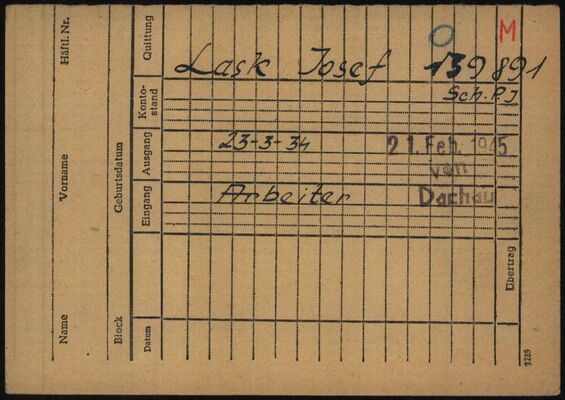 M
O
Lask Josef 139891
Sch. P. J
23-3-34
21. Feb. 1945
von
Dachau
Arbeiter
Häftl. Nr.
Vorname
Name
Geburtsdatum
Block
Quittung
Konto-
stand
Ausgang
Eingang
Datum
Übertrag
1289